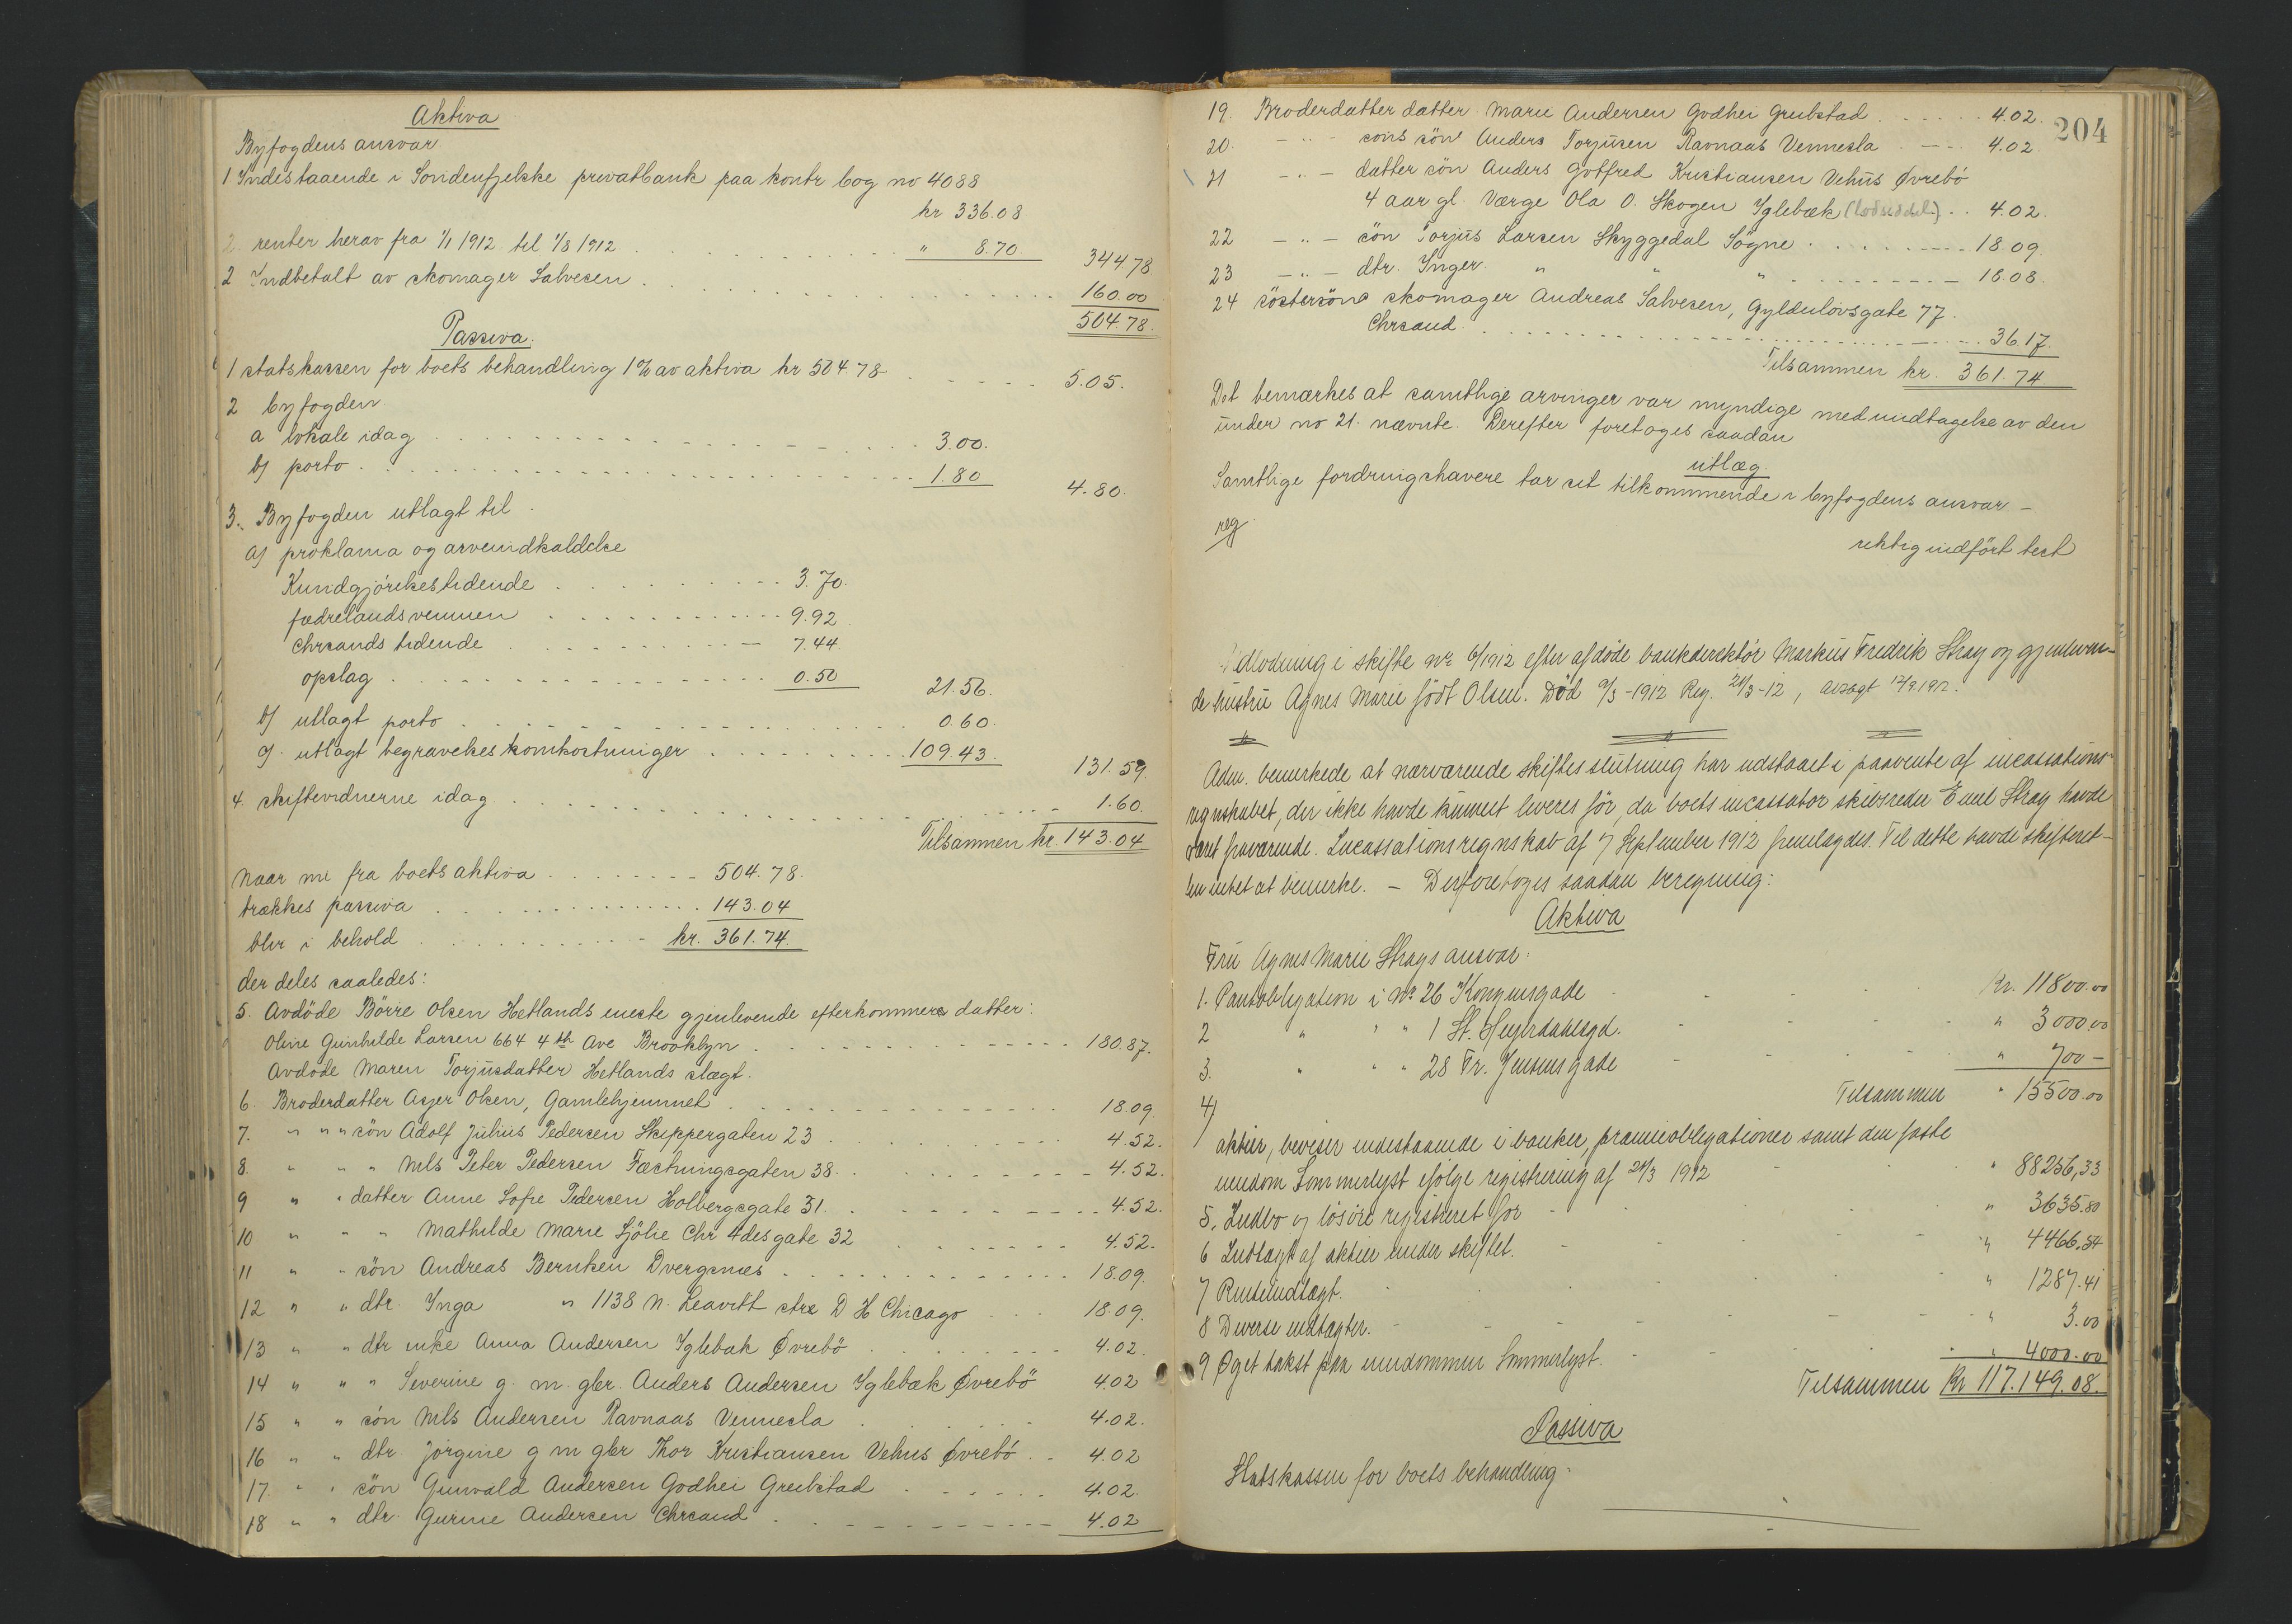 Aktiva
Byfogdens ansvar
1 Indestaaende i Söndenfjelske privatbank paa kontr bog no 4088
kr 336.08
2. renter herav fra 1/1 1912 til 1/8 1912 " 8.70 344.78
2 Indbetalt av skomager Salvesen 160.00
504.78.
Passiva.
1 statskassen for boets behandling 1% av aktiva kr 504.78 5.05.
2 byfogden
a lokale idag 3.00.
b) porto 1.80 4.80.
3. Byfogden utlagt til
a) proklama og arveindkaldelse
Kundgjörelsestidende 3.70.
fædrelandsvennen 9.92
Chrsands tidende 7.44
opslag 0.50 21.56.
b) utlagt porto 0.60.
c). utlagt begravelseskomkostninger 109.43. 131.59.
4. skiftevidnerne idag 1.60.
Tilsammen kr. 143.04
Naar nu fra boets aktiva 504.78.
trækkes passiva 143.04
blir i behold kr. 361.74.
der deles saaledes:
5. Avdöde Börre Olsen Hetlands eneste gjenlevende efterkommere datter:
Oline Gunhilde Larsen 664 4th Ave Brooklyn 180.87.
Avdöde Maren Torjusdatter Hetlands slægt.
6. Broderdatter Asjer Olsen, Gamlehjemmet 18.09.
7. " " " sön Adolf Julius Pedersen Skippergaten 23 4.52.
8. " " " Nils Peter Pedersen Fæstningsgaten 38. 4.52.
9 " " datter Anne Sofie Pedersen Holbergsgate 31. 4.52.
10 " " " Mathilde Marie Sjölie Chr 4des gate 32 4.52.
11 " " sön Andreas Berntsen Dvergsnes 18.09.
12 " " dtr. Inga " 1138 N. Leavitt stre D H Chicago 18.09.
13 " " dtr enke Anna Andersen Iglebæk Øvrebö 4.02.
14 " " " Severine g. m. gbr. Anders Andersen Iglebæk Øvrebö 4.02
15 " " sön Nils Andersen Ravnaas Vennesla 4.02.
16 " " dtr. Jörgine g m gbr Thor Kristiansen Vehus Øvrebö 4.02
17. " " sön Gunvald Andersen Godhei Greibstad 4.02.
18 " " dtr. Gurine Andersen Chrsand 4.02
204
19. Broderdatter datter Marie Andersen Godhei Greibstad 4.02.
20. - " - sons sön Anders Torjusen Ravnaas Vennesla 4.02.
21 - " - datter sön Anders Gotfred Kristiansen Vehus Øvrebö
4 aar gl. Værge Ola O. Skogen Iglebæk (lodseddel) 4.02.
22 - " - sön Torjus Larsen Skyggedal Sögne 18.09.
23 - " - dtr. Inger " " " 18.08.
24 söstersöns skomager Andreas Salvesen, Gyldenlövsgate 77.
Chrsand. 36.17.
Tilsammen kr. 361.74
Det bemærkes at samtlige arvinger var myndige med undtagelse av den
under no 21. nævnte. Derefter foretoges saadan
utlæg.
Samtlige fordringshavere tar sit tilkommende i byfogdens ansvar -
reg
riktig indfört test
Udlodning i skifte No 6/1912 efter afdöde bankdirektör Markus Fredrik Stray og gjenleven-
de hustru Agnes Marie födt Olsen. Död 9/3-1912 Reg. 21/3-12, avsagt 12/9 1912.
Adm. bemerkede at nærværende skiftes slutning har udstaaet i paavente af incassations-
regnskabet, der ikke havde kunnet leveres för, da boets incassator skibsreder Emil Stray havde
været fraværende. Incassationsregnskab af 7 September 1912 fremlagdes. Til dette havde skifteret-
ten intet at bemerke. - Derforetoges saadan beregning:
Aktiva
Fru Agnes Marie Strays ansvar:
1. Pantobligation i No 26 Kongensgade Kr. 11800.00
2 " " " 1 St. Heyerdahlsgd. " 3000.00
3. " " " 28 Fr. Jensens gade " 700 -
Tilsammen " 15500.00
4) aktier, beviser indestaaende i banker, præmieobligationer samt den faste
eiendom Sommerlyst ifölge registrering af 21/3 1912 " 88256,33
5. Indbo og lösöre registreret for " 3635.80
6 Indtægt af aktier under skiftet. " 4466.54
7 Renteindtægt. " 1287.41
8 Diverse indtægter. " 3.00
9 Øget takst paa eiendommen Sommerlyst. " 4000.00
Tilsammen Kr 117.149.08.
Passiva
Statskassen for boets behandling: